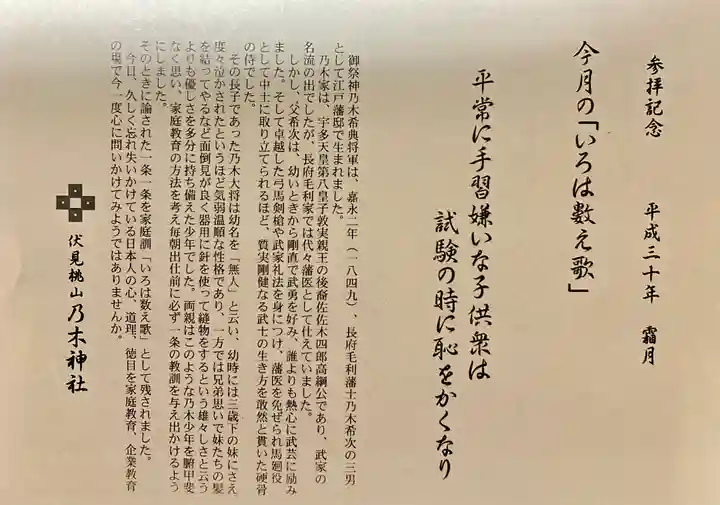 参拝記念　平成三十年　霜月
今月の「いろは数え歌」
平常に手習嫌いな子供衆は
試験の時に恥をかくなり
御祭神乃木希典将軍は、嘉永二年（一八四九）、長府毛利藩士乃木希次の三男
として江戸藩邸で生まれました。
乃木家は、宇多天皇第八皇子敦実親王の後裔佐佐木四郎高綱公であり、武家の
名流の出でしたが、長府毛利家では代々藩医として仕えていました。
しかし、父希次は、幼いときから剛直で武勇を好み、誰よりも熱心に武芸に励み
ました。そして卓越した弓馬剣槍や武家礼法を身につけ、藩医を免ぜられ馬廻役
として中士に取り立てられるほど、質実剛健なる武士の生き方を敢然と貫いた硬骨
の侍でした。
その長子であった乃木大将は幼名を「無人」と云い、幼時には三歳下の妹にさえ
度々泣かされたというほど気弱温順な性格であり、一方では兄弟思いで妹たちの髪
を結ってやるなど面倒見が良く器用に針を使って縫物をするという雄々しさと云う
よりも優しさを多分に持ち備えた少年でした。両親はこのような乃木少年を腑甲斐
なく思い、家庭教育の方法を考え毎朝出仕前に必ず一条の教訓を与え出かけるよう
にしました。
そのときに諭された一条一条を家庭訓「いろは数え歌」として残されました。
今日、久しく忘れ失いかけている日本人の心、道理、徳目を家庭教育、企業教育
の場で今一度心に問いかけてみようではありませんか。
伏見桃山 乃木神社